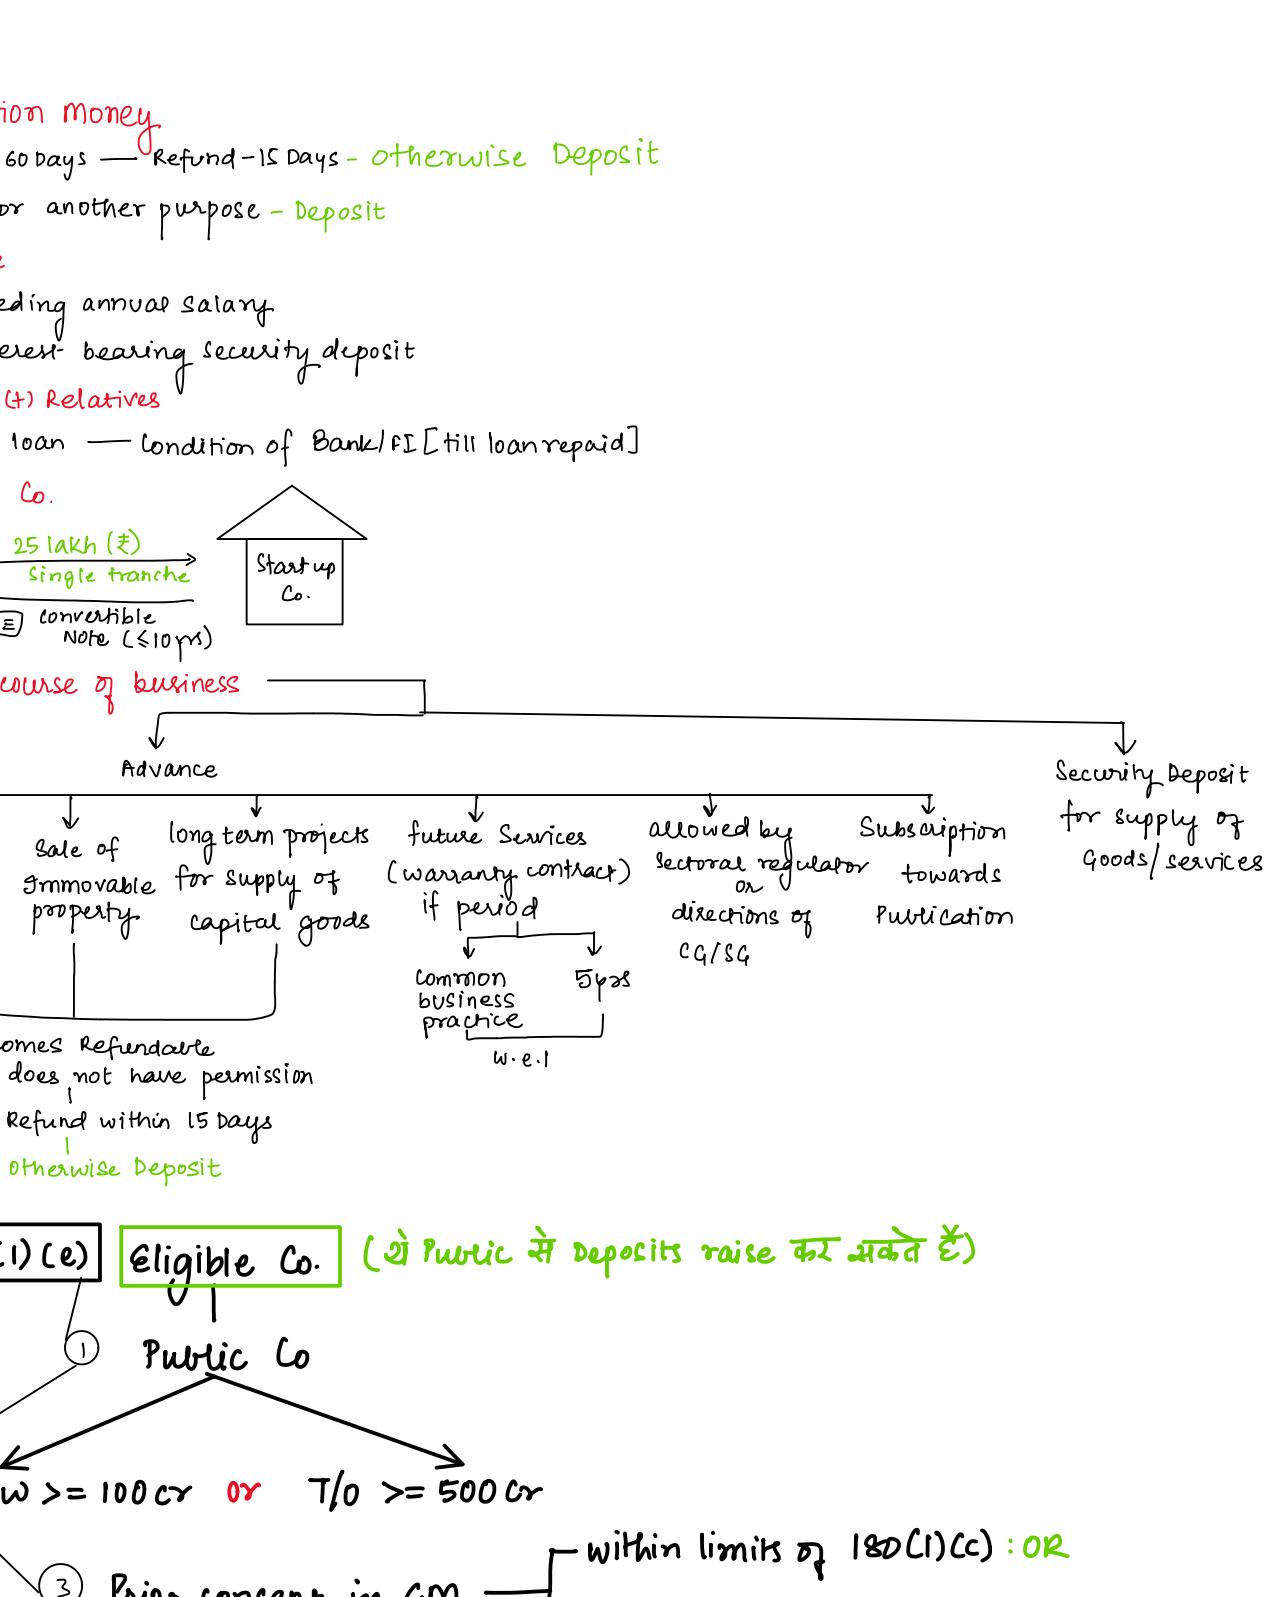 ion Money
60 Days — Refund - 15 Days - Otherwise Deposit
or another purpose - Deposit
e
eding annual salary
erest bearing security deposit
(+) Relatives
loan — Condition of Bank/FI [till loan repaid]
Co.
25 lakh (₹)
Single tranche
Startup
Co.
E convertible
Note (≤10 yrs)
course of business
Advance
Security Deposit
for supply of
Goods/services
Sale of
Immovable
property
long term projects
for supply of
capital goods
future Services
(warranty contract)
if period
Common
business
practice
5 yrs
w.e.l
allowed by
sectoral regulator
or
directions of
CG/SG
Subscription
towards
Publication
omes Refundable
does not have permission
Refund within 15 Days
Otherwise Deposit
(1)(e) Eligible Co. (ये Public से Deposits raise कर सकते हैं)
1
Public Co
W >= 100 cr or T/O >= 500 Cr
within limits of 180(1)(c) : OR
3 Prior consent in GM